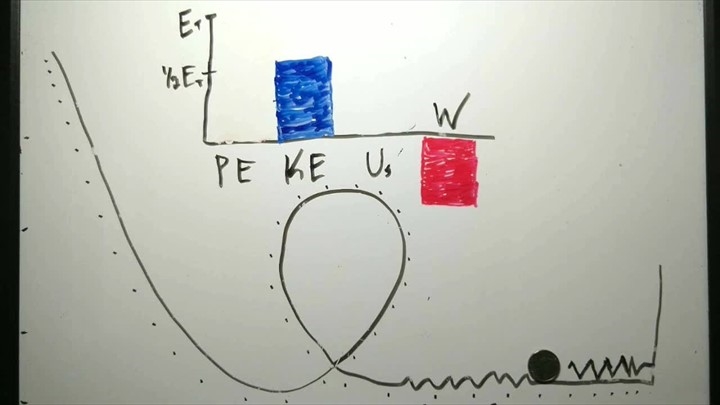 E_T
½E_T
W
PE KE Us